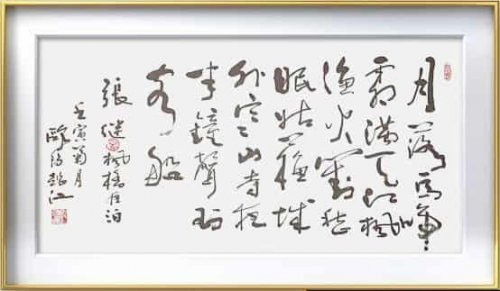 月落烏啼
霜滿天江楓
漁火對愁
眠姑蘇城
外寒山寺夜
半鐘聲到
客船
張繼楓橋夜泊
壬寅菊月
江